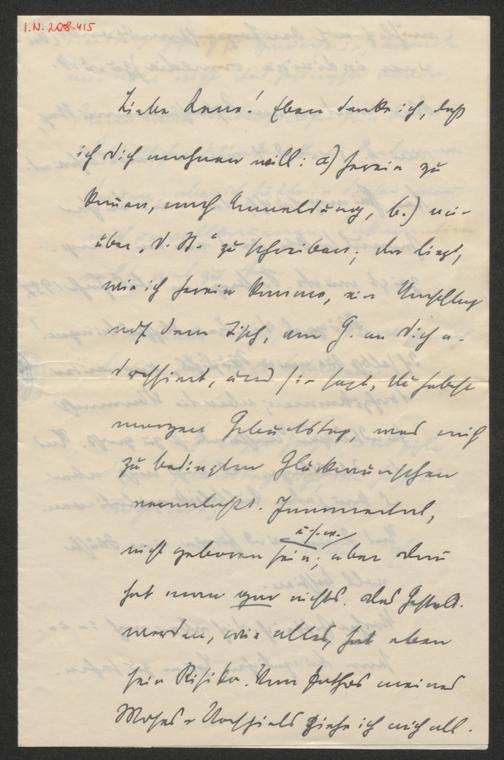 I.N. 208.415
Liebe Lene! Eben denke ich, daß
ich dich mahnen will: a) herein zu
kommen, nach Anmeldung, b.) mir
über „V. St." zu schreiben; da liegt,
wie ich herein komme, ein Umschlag
auf dem Tisch, von G. an dich a-
dressiert, und sie sagt, du habest
morgen Geburtstag, was mich
zu bedingten Glückwünschen
veranlaßt. Immerhin,
nicht geboren sein, u.s.w. aber dann
hat man gar nichts. Das Gestalt-
werden, wie alles, hat eben
sein Risiko. Vom Pathos meines
Moses u. Vorspiels ziehe ich nich ab.